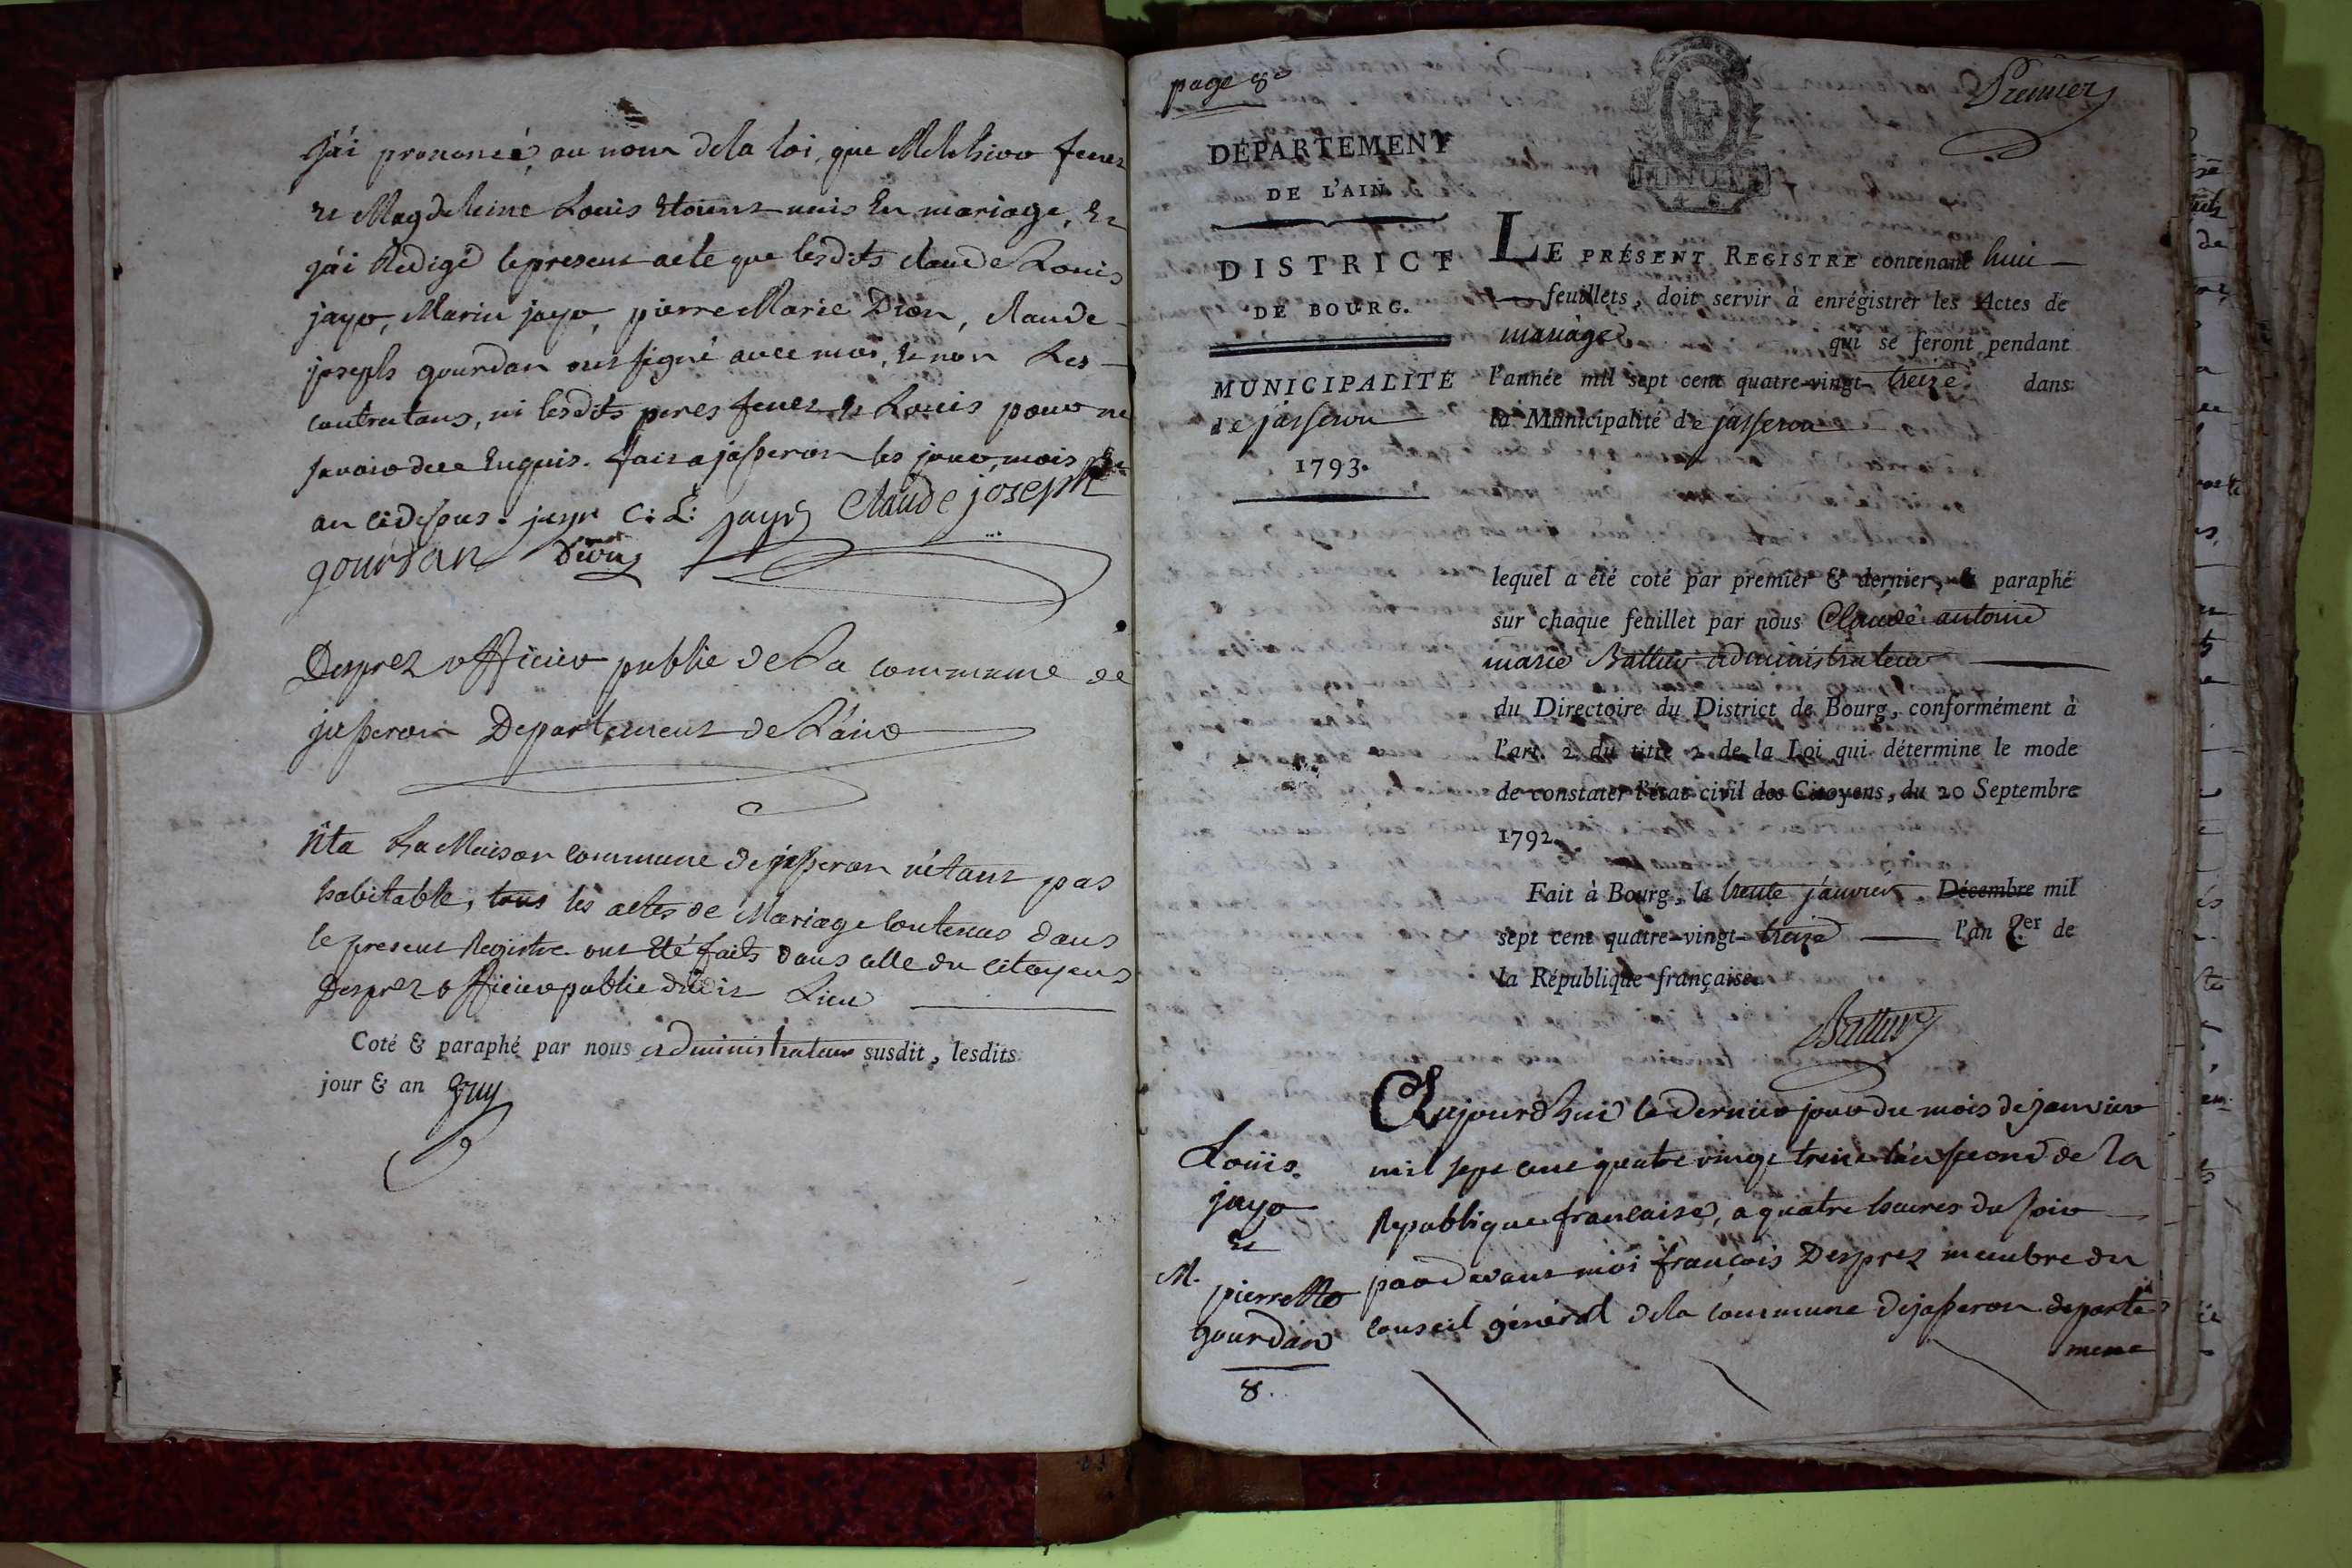 j'ai prononcé, au nom de la loi, que Melchior feuez
et Magdeleine Louis Etoient unis En mariage, Et
j'ai Redigé le present acte que lesdits claude Louis
jayr, Marin jayr, pierre Marie Dron, claude
joseph gourdan ont signé avec moi, et non Les
contractans, ni lesdits peres feuez et Louis pour ne
savoir de ce Enquis. fait a jasseron les jour, mois Et
an cidessus. jayr C: L: jayr Claude joseph
gourdan Dron
Desprez officier public de La commune de
jasseron Departement de L'ain
Nta La Maison commune de jasseron n'étant pas
habitable, tous les actes de Mariage contenus dans
le present Registre ont Eté faits dans celle du citoyen
Desprez officier public dudit Lieu
Coté & paraphé par nous administrateur susdit, lesdits
jour & an
page 8e
Premier
DÉPARTEMENT
DE L'AIN.
DISTRICT
DE BOURG.
MUNICIPALITÉ
de jasseron
1793.
MINUTE
LE PRÉSENT REGISTRE contenant huit
feuillets, doit servir à enrégistrer les Actes de
mariage qui se feront pendant
l'année mil sept cent quatre-vingt-treize dans
la Municipalité de jasseron
lequel a été coté par premier & dernier, & paraphé
sur chaque feuillet par nous Claude antoine
marie administrateur
du Directoire du District de Bourg, conformément à
l'art. 2 du titre 2 de la Loi qui détermine le mode
de constater l'état civil des Citoyens, du 20 Septembre
1792.
Fait à Bourg, le trente janvier Décembre mil
sept cent quatre-vingt-treize l'an 2.er de
la République française.
Louis
jayr
Et
M.
pierrette
gourdan
8.
Aujourdhui le Dernier jour du mois de janvier
mil sept cent quatre vingt treize l'an second de la
Republique francaise, a quatre heures du soir
pardevant moi françois Desprez membre du
conseil général de la commune de jasseron departe
ment